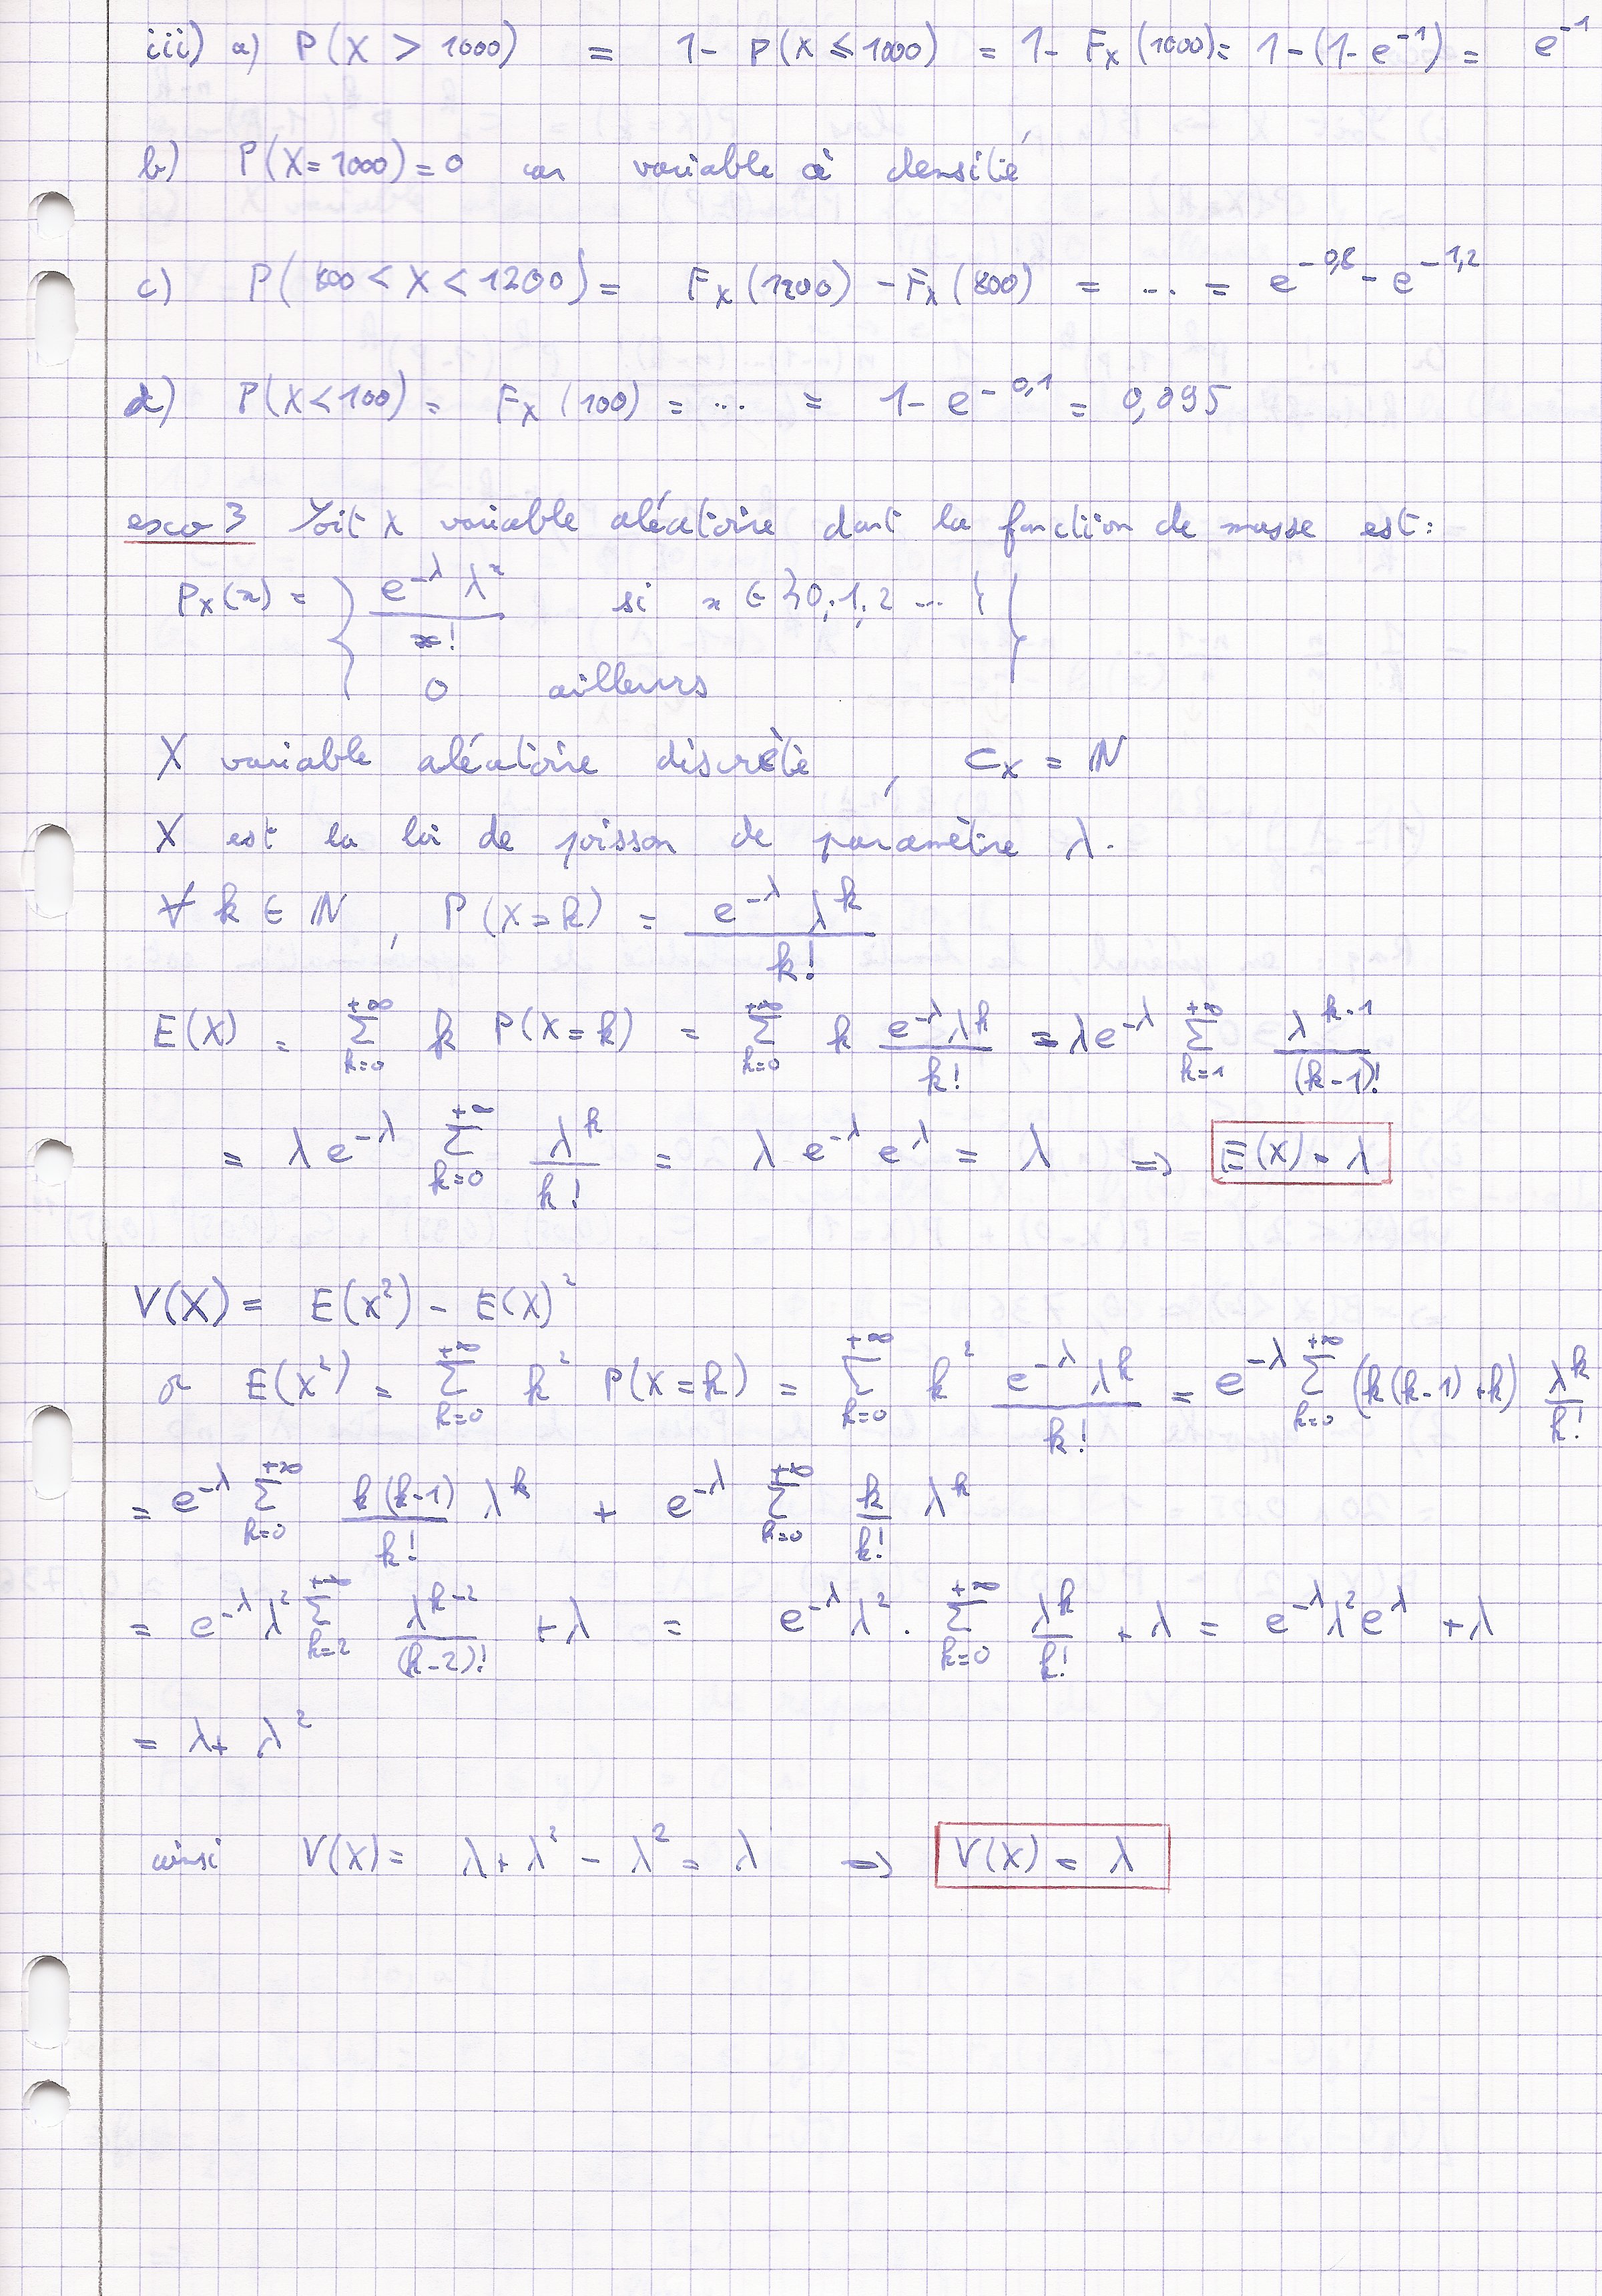 iii) a) P(X > 1000) = 1 - P(X ≤ 1000) = 1 - F_X(1000) = 1 - (1 - e^{-1}) = e^{-1}
b) P(X = 1000) = 0 car variable à densité
c) P(800 < X < 1200) = F_X(1200) - F_X(800) = ... = e^{-0,8} - e^{-1,2}
d) P(X < 100) = F_X(100) = ... = 1 - e^{-0,1} = 0,095
exo 3 Soit X variable aléatoire dont la fonction de masse est :
P_X(x) = { e^{-λ} λ^x / x! si x ∈ {0, 1, 2 ... }
0 ailleurs }
X variable aléatoire discrète , C_X = ℕ
X est la loi de poisson de paramètre λ.
∀ k ∈ ℕ , P(X = k) = e^{-λ} λ^k / k!
E(X) = Σ_{k=0}^{+∞} k P(X = k) = Σ_{k=0}^{+∞} k e^{-λ} λ^k / k! = λ e^{-λ} Σ_{k=1}^{+∞} λ^{k-1} / (k-1)!
= λ e^{-λ} Σ_{k=0}^{+∞} λ^k / k! = λ e^{-λ} e^{λ} = λ => E(X) = λ
V(X) = E(X²) - E(X)²
or E(X²) = Σ_{k=0}^{+∞} k² P(X = k) = Σ_{k=0}^{+∞} k² e^{-λ} λ^k / k! = e^{-λ} Σ_{k=0}^{+∞} (k(k-1) + k) λ^k / k!
= e^{-λ} Σ_{k=0}^{+∞} k(k-1) / k! λ^k + e^{-λ} Σ_{k=0}^{+∞} k / k! λ^k
= e^{-λ} λ² Σ_{k=2}^{+∞} λ^{k-2} / (k-2)! + λ = e^{-λ} λ² . Σ_{k=0}^{+∞} λ^k / k! + λ = e^{-λ} λ² e^{λ} + λ
= λ + λ²
ainsi V(X) = λ + λ² - λ² = λ => V(X) = λ